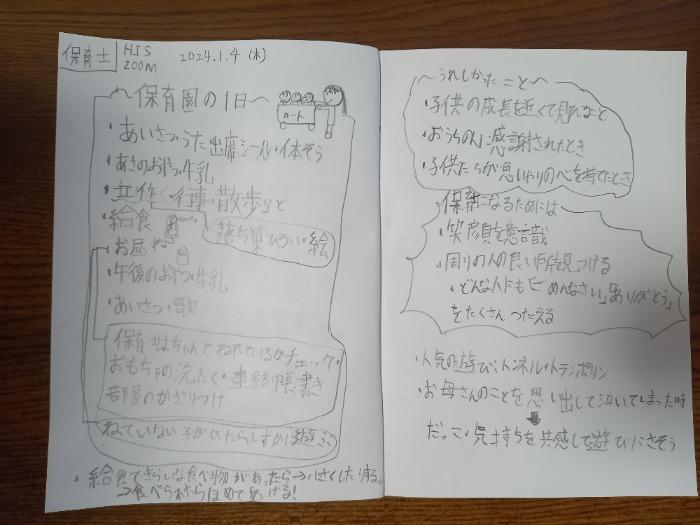 保育士
HIS
ZOOM
2024.1.4 (木)
〜保育園の1日〜
カート
・あいさつ・うた・出席シール・体そう
・あさのおやつ・牛乳
・共作・行事・散歩など
落ち葉ひろい・絵
・給食
・お昼ね
・午後のおやつ・牛乳
・あいさつ・歌
保育
ちゃんとねれているかチェック・
おもちゃの洗たく・連絡帳書き
部屋のかざりつけ
ねていない子がいたらしずかに遊ぶ
・給食できらいな食べ物があったら→小さくしたりする。
⇒食べられたらほめてあげる!
〜うれしかったこと〜
・子供の成長を近くで見れること
・おうちの人に感謝されたとき
・子供たちが思いやりの心を持てたとき
保育士になるためには
・笑顔を意識
・周りの人の良い所見つける
・どんな人にも「ごめんなさい」「ありがとう」
をたくさんつたえる
・人気の遊び:トンネル・トランポリン
・お母さんのことを思い出して泣いてしまった時
↓
だっこ・気持ちを共感して遊びにさそう